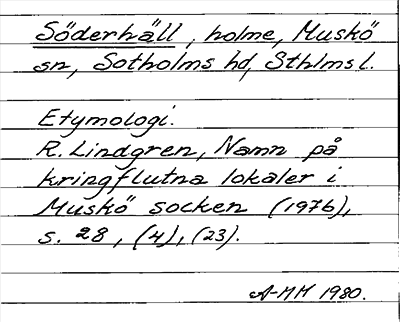 Söderhäll, holme, Muskö
sn, Sotholms hd, Sthlms l.
Etymologi.
R. Lindgren, Namn på
kringflutna lokaler i
Muskö socken (1976),
s. 28, (4), (23).
A-MH 1980.